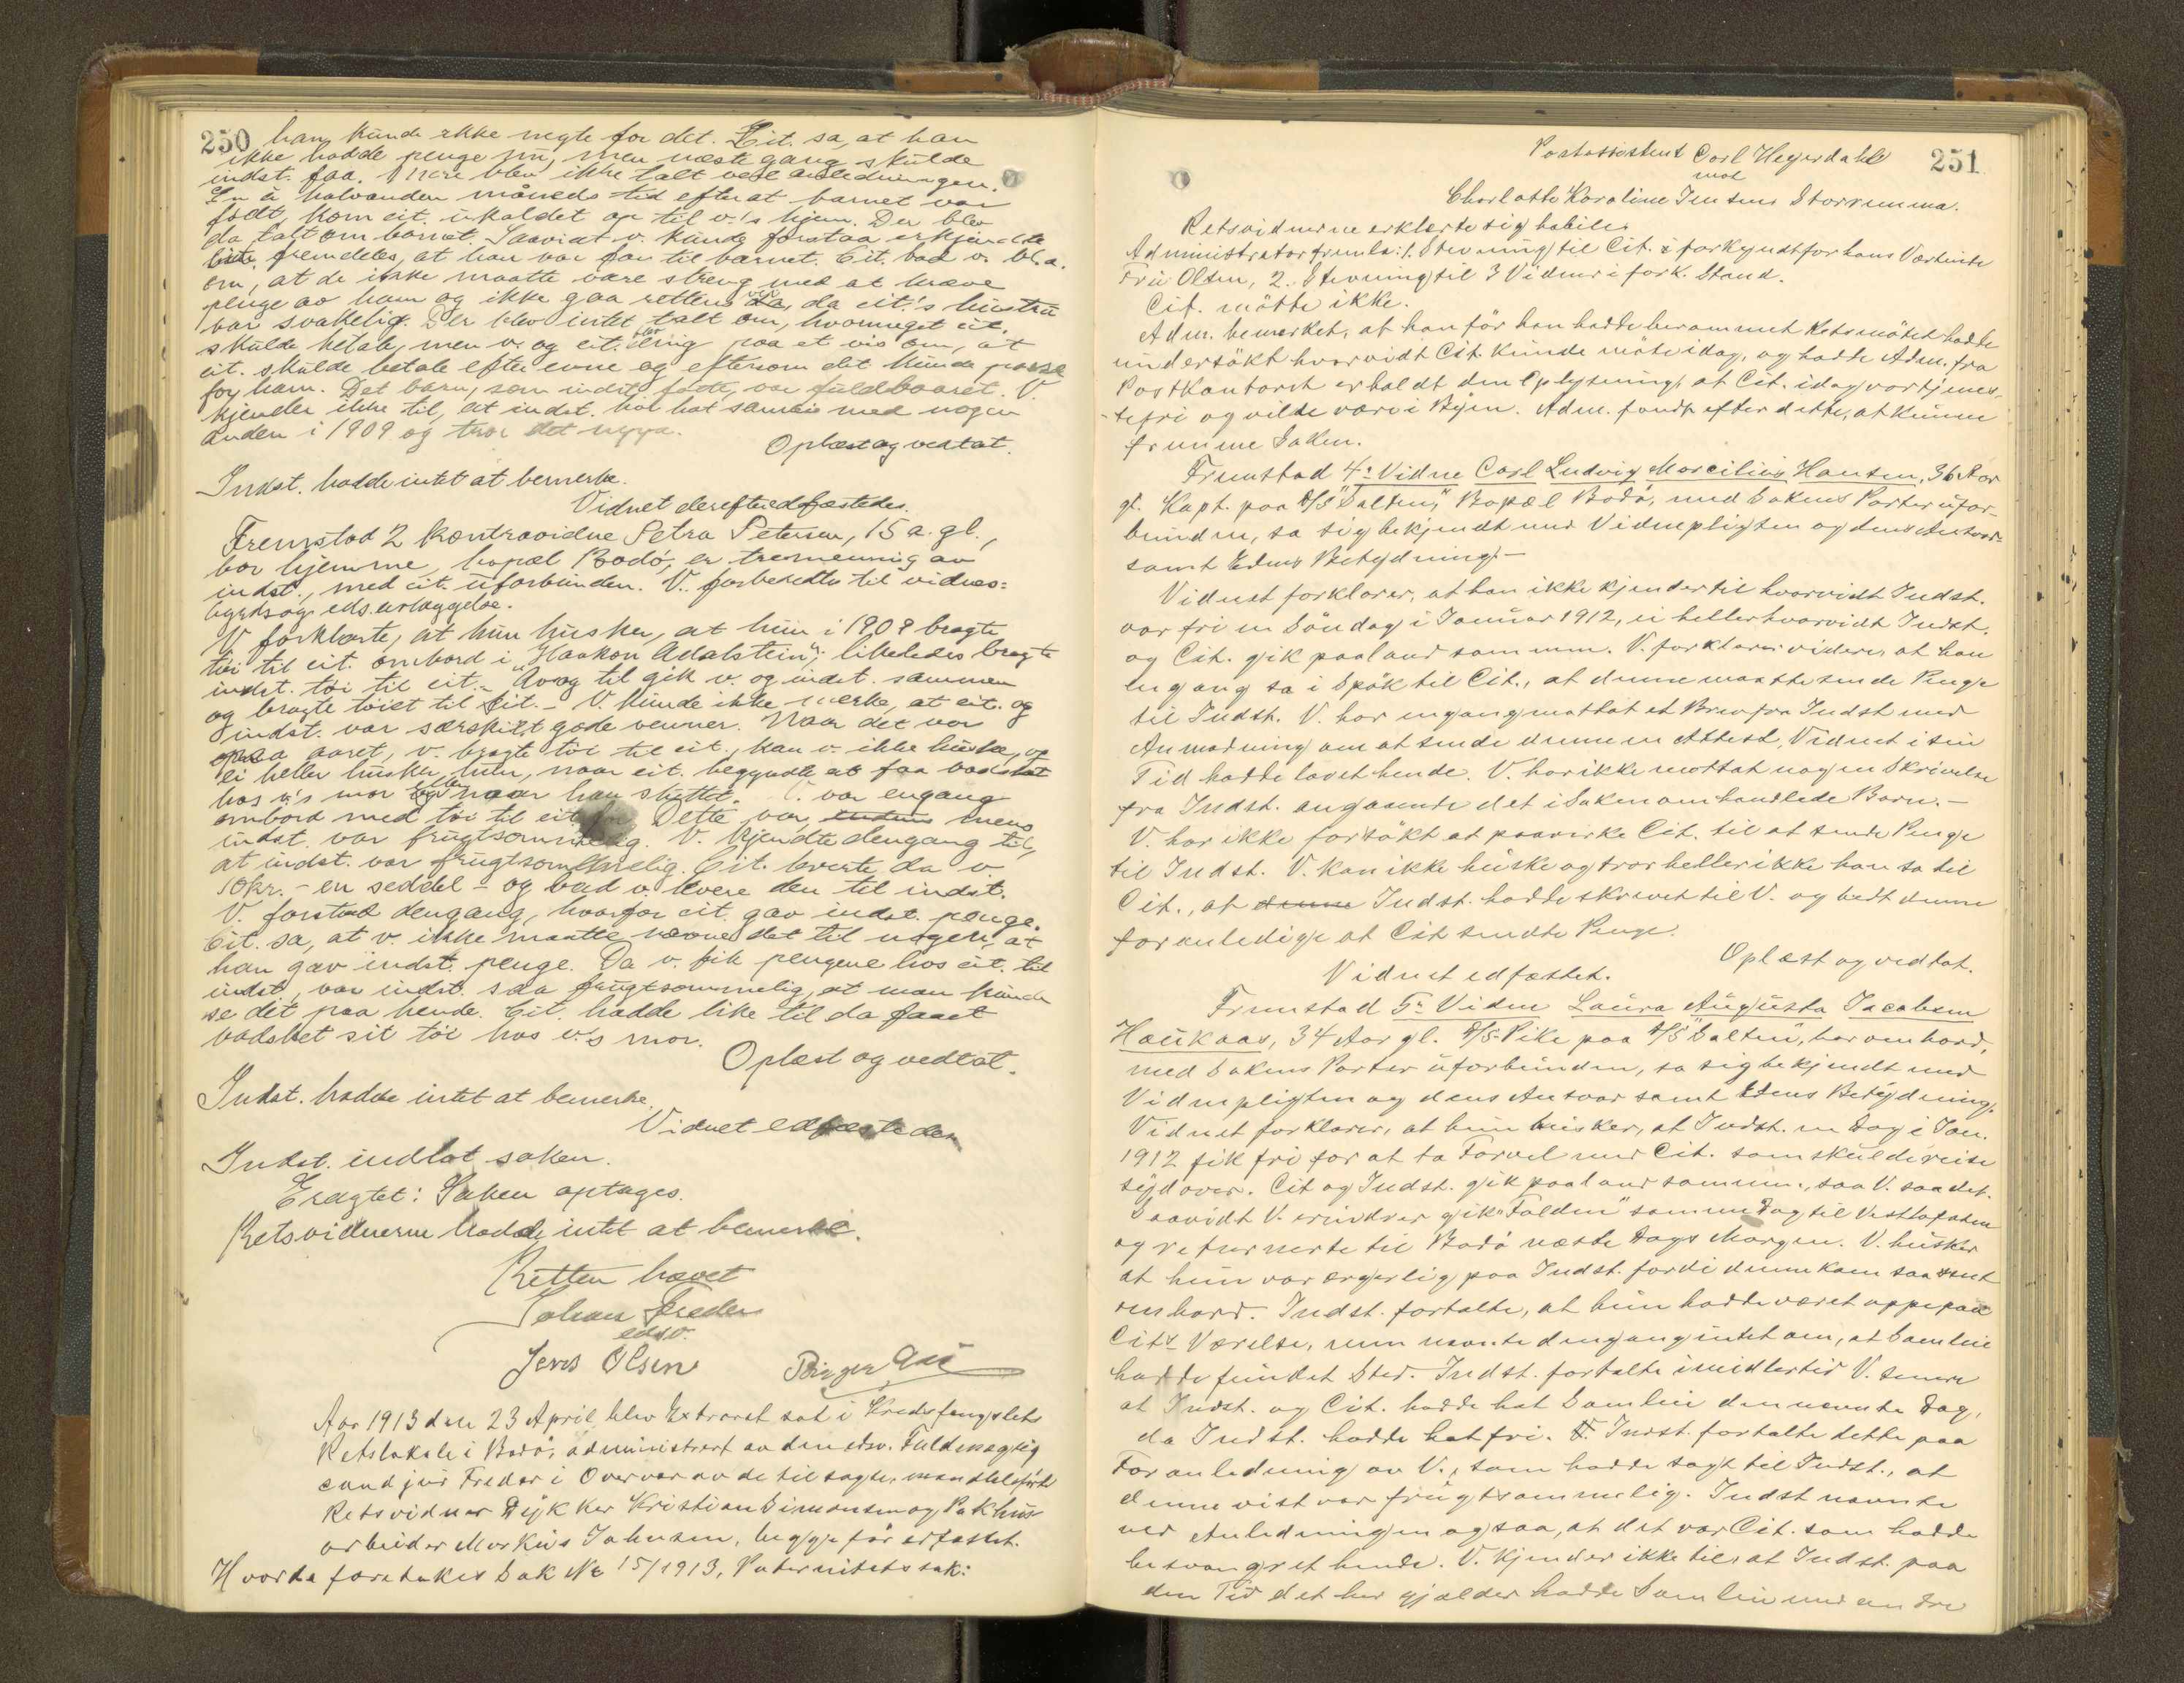 250
han kunde ikke negte for det. Cit. sa, at han
ikke hadde penge nu, men næste gang skulde
indst. faa. Mere blev ikke talt ved anledningen.
En à halvanden måneds tid efterat barnet var
født, kom cit. ukaldet op til v.'s hjem. Der blev
da talt om barnet. Saavidt v. kunde forstaa erkjendte
cit. fremdeles, at han var far til barnet. Cit. bad v. bl.a.
om, at de ikke maatte være streng med at kræve
penge av ham og ikke gaa rettens vei, da cit.'s hustru
var svakelig. Der blev intet talt om, hvormeget cit.
skulde betale, men v. og cit. blev enig paa et vis om, at
cit. skulde betale efter evne og eftersom det kunde passe
for ham. Det barn, som indst. fødte, var fuldbaaret. V.
kjender ikke til, at indst. har hat samleie med nogen
anden i 1909 og tror det neppe.
Oplæst og vedtat.
Indst. hadde intet at bemerke.
Vidnet derefter edfæstedes.
Fremstod 2 kontravidne Petra Petersen, 15 a. gl.,
bor hjemme, bopæl Bodø, er tremenning av
indst., med cit. uforbunden. V. forberedtes til vidnes=
byrds og eds avlæggelse.
V. forklarte, at hun husker, at hun i 1909 bragte
tøi til cit. ombord i "Haakon Adalstein"; likeledes bragte
indst. tøi til cit. - Av og til gik v. og indst. sammen
og bragte tøiet til cit. - V. kunde ikke merke, at cit. og
indst. var særskilt gode venner. Naar det var
paa aaret, v. bragte tøi til cit., kan v. ikke huske, og
ei heller husker hun, naar cit. begyndte at faa vasket
hos v.'s mor eller naar han sluttet. V. var engang
ombord med tøi til cit. før. Dette var, mens
indst. var frugtsommelig. V. kjendte dengang til,
at indst. var frugtsommelig. Cit. leverte da v.
10 kr. - en seddel - og bad v. levere den til indst.
V. forstod dengang, hvorfor cit. gav indst. penge.
Cit. sa, at v. ikke maatte nævne det til nogen, at
han gav indst. penge. Da v. fik pengene hos cit. til
indst., var indst. saa frugtsommelig, at man kunde
se det paa hende. Cit. hadde like til da faaet
vasket sit tøi hos v.'s mor.
Oplæst og vedtat.
Indst. hadde intet at bemerke.
Vidnet edfæstedes
Indst. indlot saken.
Eragtet: Saken optages.
Retsvidnerne hadde intet at bemerke.
Retten hævet
Johan Freder
edsv.
Jens Olsen Birger
Aar 1913 den 23 April blev Extraret sat i Kredsfængslets
Retslokale i Bodø, administrert av den edsv. Fuldmægtig
cand jur Freder i Overvær av de tilsagte, mandtalsførte
Retsvidner Dykker Kristian Simonsen og Pakhus
arbeider Markus Johnsen, begge før edfæstet.
Hvorda foretakes Sak No 15/1913, Paternitetssak:
251
Postassistent Carl Heyerdahl
mod
Charlotte Karoline Jensens Storrumma.
Retsvidnerne erklærte sig habile.
Administrator fremla: 1. Stevning til Cit. i forkyndt for hans Vertinde
Fru Olsen, 2. Stevning til 3 Vidner i fork. Stand.
Cit. møtte ikke.
Adm. bemerket, at han før han hadde berammet Retsmøtet hadde
undersøkt hvorvidt Cit. kunde møte idag, og hadde Adm. fra
Postkontoret erholdt den Oplysning, at Cit. idag var tjenes-
-tefri og vilde være i Byen. Adm. fandt efter dette, at kunne
fremme Saken.
Fremstod 4. Vidne Carl Ludvig Marcilius Hansen, 36 Aar
gl. Kapt. paa D/S "Salten", Bopæl Bodø, med Sakens Parter ufor-
bunden, sa sig bekjendt med Vidnepligten og dens Ansvar=
samt Edens Betydning. -
Vidnet forklarer, at han ikke kjender til hvorvidt Indst.
var fri en Søndag i Januar 1912, ei heller hvorvidt Indst.
og Cit. gik paaland sammen. V. forklarer videre, at han
engang sa i Spøk til Cit., at denne maatte sende Penge
til Indst. V. har engang mottat et Brev fra Indst med
Anmodning om at sende denne en Attest, Vidnet i sin
Tid hadde lovet hende. V. har ikke mottat nogen Skrivelse
fra Indst. angaaende det i Saken omhandlede Barn. -
V. har ikke forsøkt at paavirke Cit. til at sende Penge
til Indst. V. kan ikke huske og tror heller ikke han sa til
Cit., at denne Indst. hadde skrevet til V. og bedt denne
foranledige at Cit sendte Penge.
Oplæst og vedtat.
Vidnet edfæstet.
Fremstod 5. Vidne Laura Augusta Jacobsen
Haukaas, 34 Aar gl. D/S-Pike paa D/S "Salten", bor ombord,
med Sakens Parter uforbunden, sa sig bekjendt med
Vidnepligten og dens Ansvar samt Edens Betydning.
Vidnet forklarer, at hun husker, at Indst. en Dag i Jan.
1912 fik fri for at ta Farvel med Cit. som skulde reise
sydover. Cit og Indst. gik paaland sammen, saa V. saa det.
Saavidt V. erindrer gik "Folden" samme Dag til Vestlofoten
og returnerte til Bodø næste Dags Morgen. V. husker
at hun var ærgerlig paa Indst. fordi denne kom saa sent
ombord. Indst. fortalte, at hun hadde været oppe paa
Cits Værelse, men nævnte dengang intet om, at Samleie
hadde fundet Sted. Indst. fortalte imidlertid V. senere
at Indst. og Cit. hadde hat Samleie den nævnte Dag,
da Indst. hadde hat fri. Indst. fortalte dette paa
Foranledning av V., som hadde sagt til Indst., at
denne vist var frugtsommelig. Indst nævnte
ved Anledningen ogsaa, at det var Cit. som hadde
besvangret hende. V. kjender ikke til, at Indst. paa
den Tid det her gjælder hadde Samleie med andre